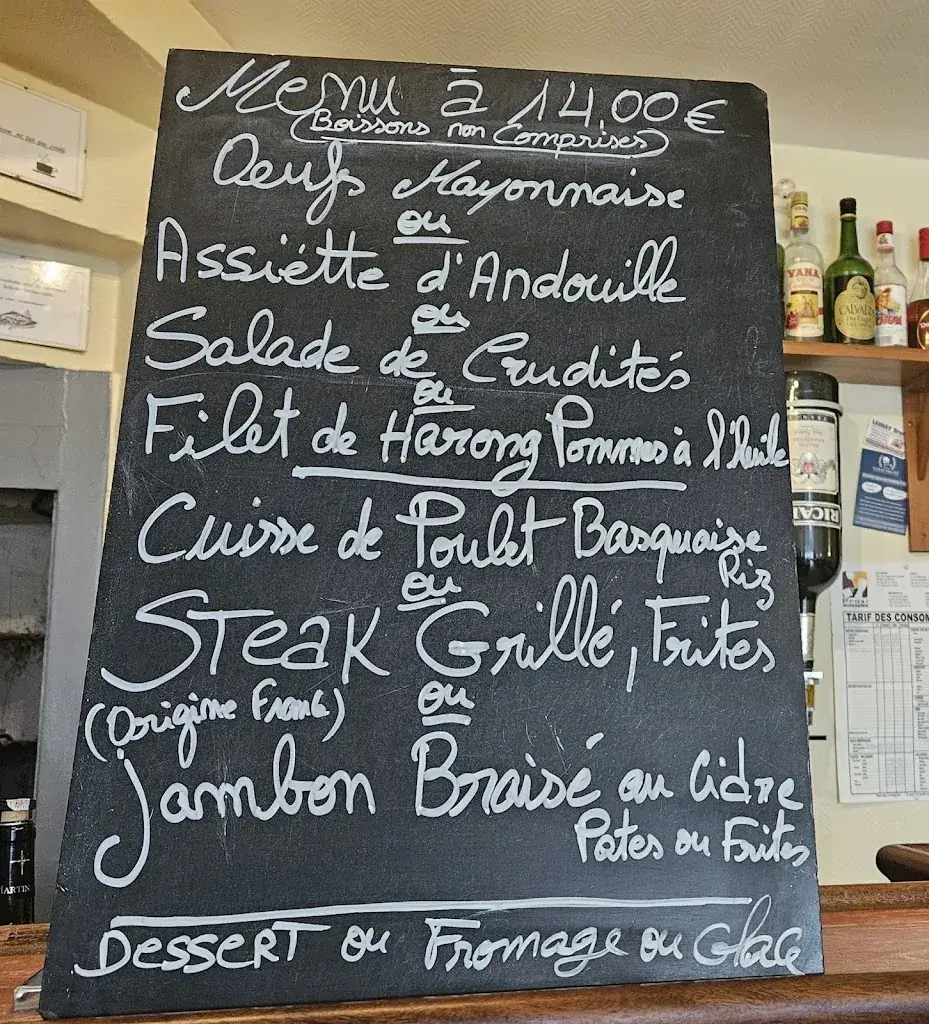 Menu à 14,00 €
(Boissons non Comprises)
Oeufs Mayonnaise
ou
Assiëtte d'Andouille
ou
Salade de Crudités
ou
Filet de Harong Pommes à l'Huile
Cuisse de Poulet Basquaise
Riz
ou
Steak Grillé, Frites
(Dorigine France)
ou
Jambon Braisé au Cidre
Pates ou Frites
Dessert ou Fromage ou Glace
VANA
CALVADOS
RICA
TARIF DES CONSOM
ARTIN